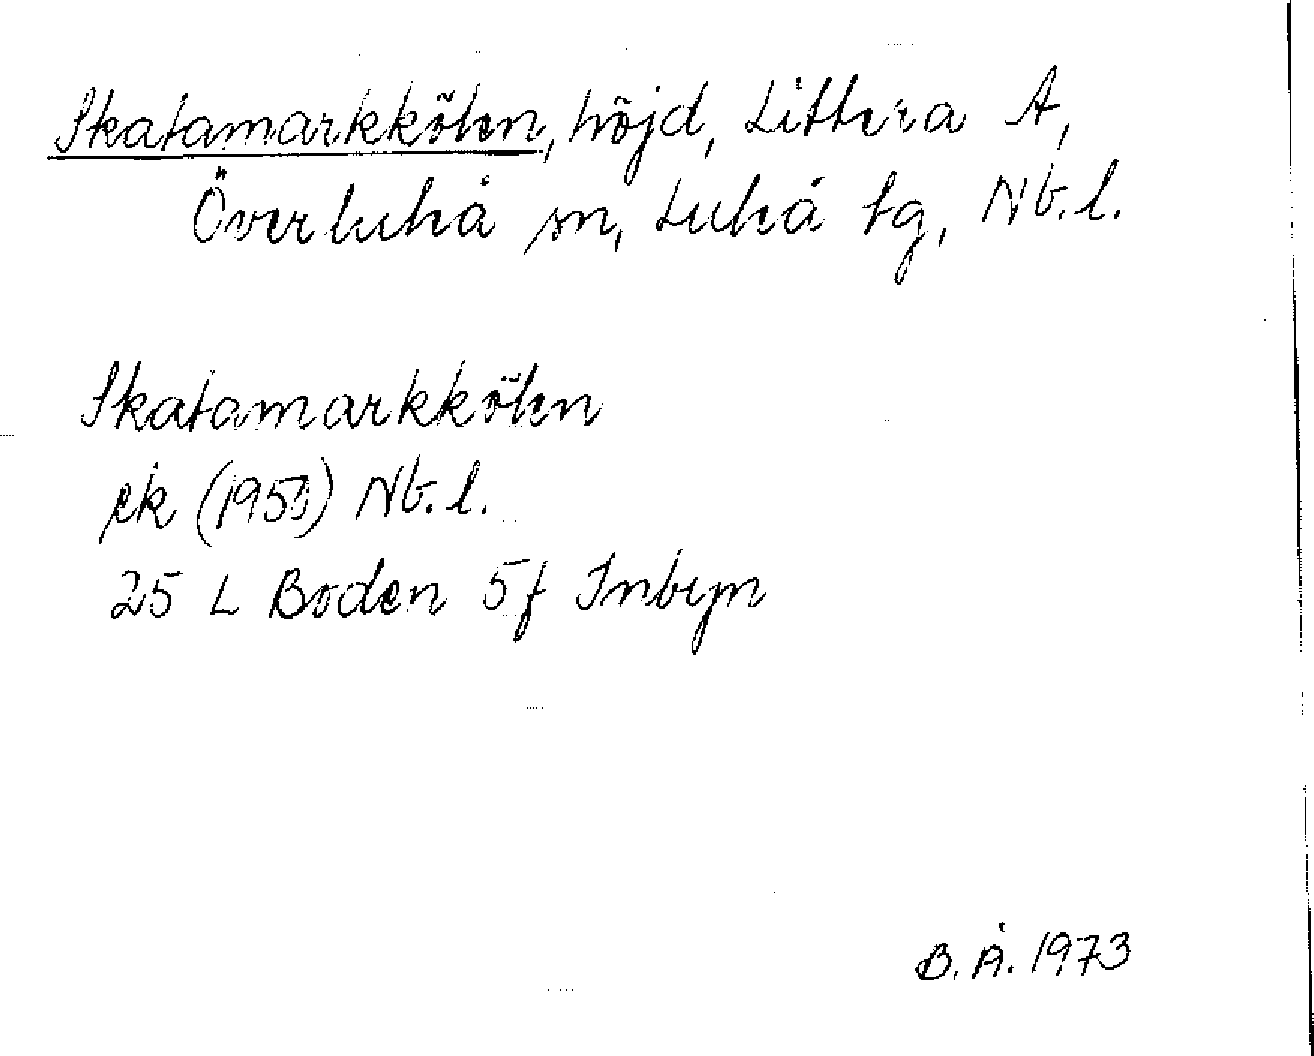 Skatamarkkölen, höjd, Littera A,
Överluleå sn, Luleå tg, Nb. l.
Skatamarkkölen
ek (1950) Nb. l.
25 L Boden 5f Inbyn
B. Å. 1973